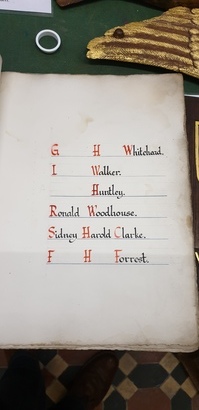 G H Whitehaid.
I Walker.
Huntley.
Ronald Woodhouse.
Sidney Harold Clarke.
F H Forrest.